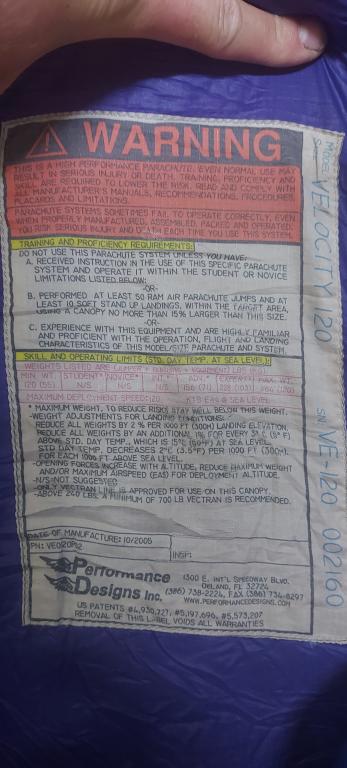 WARNING
THIS IS A HIGH PERFORMANCE PARACHUTE. EVEN NORMAL USE MAY
RESULT IN SERIOUS INJURY OR DEATH. TRAINING, PROFICIENCY AND
SKILL ARE REQUIRED TO LOWER THE RISK. READ AND COMPLY WITH
ALL MANUFACTURER'S MANUALS, RECOMMENDATIONS, PROCEDURES,
PLACARDS AND LIMITATIONS.
PARACHUTE SYSTEMS SOMETIMES FAIL TO OPERATE CORRECTLY, EVEN
WHEN PROPERLY MANUFACTURED, ASSEMBLED, PACKED AND OPERATED.
YOU RISK SERIOUS INJURY AND DEATH EACH TIME YOU USE THIS SYSTEM.
TRAINING AND PROFICIENCY REQUIREMENTS:
DO NOT USE THIS PARACHUTE SYSTEM UNLESS YOU HAVE:
A. RECEIVED INSTRUCTION IN THE USE OF THIS SPECIFIC PARACHUTE
SYSTEM AND OPERATE IT WITHIN THE STUDENT OR NOVICE
LIMITATIONS LISTED BELOW;
-OR-
B. PERFORMED AT LEAST 50 RAM AIR PARACHUTE JUMPS AND AT
LEAST 10 SOFT STAND UP LANDINGS, WITHIN THE TARGET AREA,
USING A CANOPY NO MORE THAN 15% LARGER THAN THIS SIZE.
-OR-
C. EXPERIENCE WITH THIS EQUIPMENT AND ARE HIGHLY FAMILIAR
AND PROFICIENT WITH THE OPERATION, FLIGHT AND LANDING
CHARACTERISTICS OF THIS MODEL/SIZE PARACHUTE AND SYSTEM.
SKILL AND OPERATING LIMITS (STD. DAY TEMP. AT SEA LEVEL):
WEIGHTS LISTED ARE EQUIPMENT LBS
MIN. WT. STUDENT* NOVICE* INT.* ADV.* EXPERT* MAX. WT.
120 (55) N/S N/S N/S 156 (71)
MAXIMUM DEPLOYMENT SPEED: KTS EAS @ SEA LEVEL
* MAXIMUM WEIGHT, TO REDUCE RISKS STAY WELL BELOW THIS WEIGHT.
-WEIGHT ADJUSTMENTS FOR LANDING CONDITIONS:
REDUCE ALL WEIGHTS BY 2 % PER 1000 FT (300M) LANDING ELEVATION.
REDUCE ALL WEIGHTS BY AN ADDITIONAL 1% FOR EVERY
ABOVE STD. DAY TEMP., WHICH IS 15°C (59°F) AT SEA LEVEL.
STD DAY TEMP. DECREASES 2°C (3.5°F) PER 1000 FT (300M).
FOR EACH 1000 FT ABOVE SEA LEVEL.
-OPENING FORCES INCREASE WITH ALTITUDE, REDUCE MAXIMUM WEIGHT
AND/OR MAXIMUM AIRSPEED (EAS) FOR DEPLOYMENT ALTITUDE.
-N/S=NOT SUGGESTED
-ONLY VECTRAN LINE IS APPROVED FOR USE ON THIS CANOPY.
-ABOVE 240 LBS. A MINIMUM OF 700 LB VECTRAN IS RECOMMENDED.
DATE OF MANUFACTURE: 10/2005
PN: INSP:
Performance
Designs Inc.
1300 E. INT'L SPEEDWAY BLVD.
DELAND, FL 32724
(386) 738-2224, FAX (386) 734-8297
WWW.PERFORMANCEDESIGNS.COM
US PATENTS #4,930,727, #5,197,696, #5,573,207
REMOVAL OF THIS LABEL VOIDS ALL WARRANTIES
VELOCITY 120
SN VE-120 002160